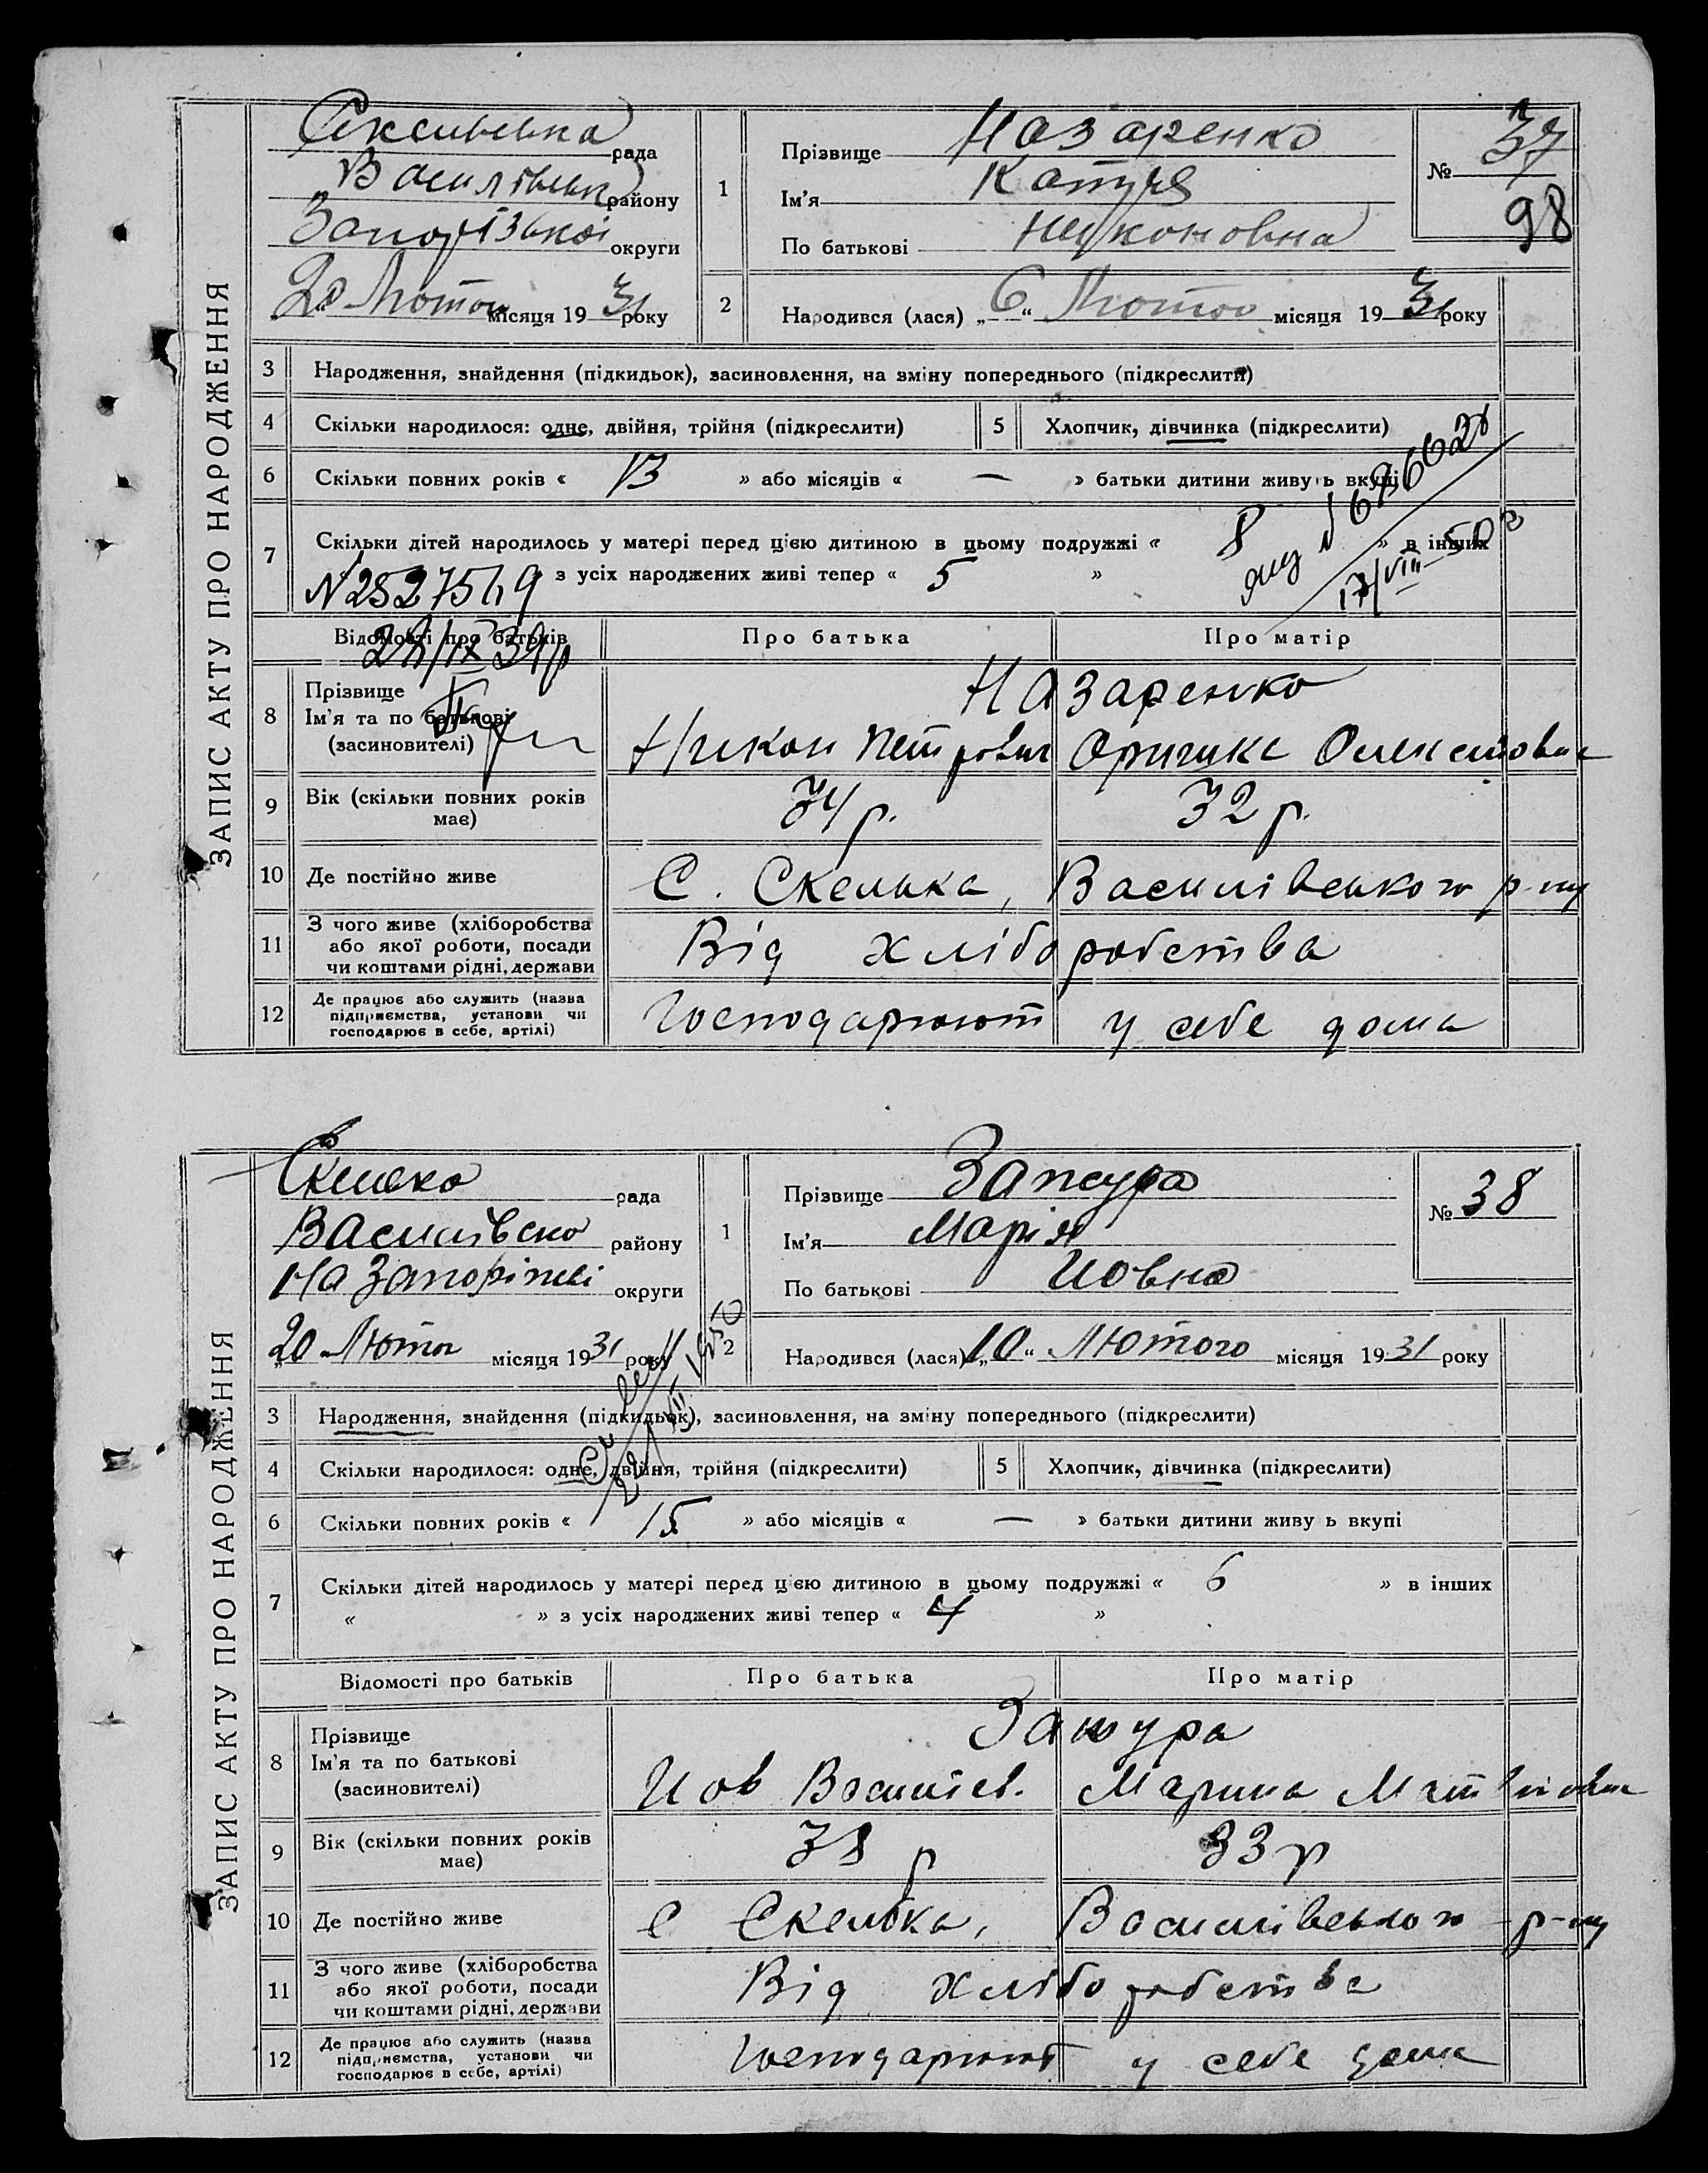 ЗАПИС АКТУ ПРО НАРОДЖЕННЯ
рада
Василівськ району
Запорізької округи
20 Лютого місяця 1931 року
1
Прізвище Назаренко
Ім'я Катря
По батькові Никоновна
№ 37
98
2
Народився (лася) „6“ Лютого місяця 1931 року
3 Народження, знайдення (підкидьок), засиновлення, на зміну попереднього (підкреслити)
4 Скільки народилося: одне, двійня, трійня (підкреслити)
5 Хлопчик, дівчинка (підкреслити)
6 Скільки повних років « 13 » або місяців « — » батьки дитини живуть вкупі
7 Скільки дітей народилось у матері перед цією дитиною в цьому подружжі « 8 » в інших
з усіх народжених живі тепер « 5 »
17/VIII 50 г
Відомості про батьків
Про батька
Про матір
8 Прізвище
Ім'я та по батькові
(засновителі)
Назаренко
Никон Петрович
9 Вік (скільки повних років
має)
34 р.
32 р.
10 Де постійно живе
С. Скелька, Василівського р-ну
11 З чого живе (хліборобства
або якої роботи, посади
чи коштами рідні, держави
Від хліборобства
12 Де працює або служить (назва
підприємства, установи чи
господарює в себе, артілі)
Господарюют у себе дома
ЗАПИС АКТУ ПРО НАРОДЖЕННЯ
рада
району
на Запоріжжі округи
„20 Лютого місяця 1931 року
1
Прізвище Зажура
Ім'я Марія
По батькові Иовна
№ 38
2
Народився (лася) „10“ Лютого місяця 1931 року
3 Народження, знайдення (підкидьок), засиновлення, на зміну попереднього (підкреслити)
4 Скільки народилося: одне, двійня, трійня (підкреслити)
5 Хлопчик, дівчинка (підкреслити)
6 Скільки повних років « 15 » або місяців « — » батьки дитини живу ь вкупі
7 Скільки дітей народилось у матері перед цією дитиною в цьому подружжі « 6 » в інших
« » з усіх народжених живі тепер « 4 »
Відомості про батьків
Про батька
Про матір
8 Прізвище
Ім'я та по батькові
(засиновителі)
Зажура
Иов Василів. Марина Матвіївна
9 Вік (скільки повних років
має)
38 р
33 р
10 Де постійно живе
С Скелька, Василівського р-ну
11 З чого живе (хліборобства
або якої роботи, посади
чи коштами рідні, держави
Від хліборобства
12 Де працює або служить (назва
підприємства, установи чи
господарює в себе, артілі)
Господарюют у себе дома